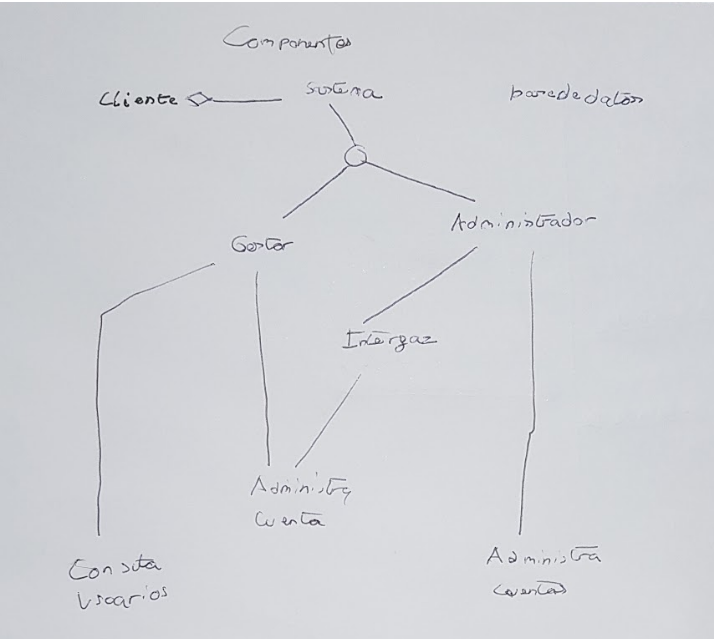 Componentes
Cliente
Sistema
base de datos
Gestor
Administrador
Intergaz
Administra
Cuenta
Consulta
Usuarios
Administra
cuentas